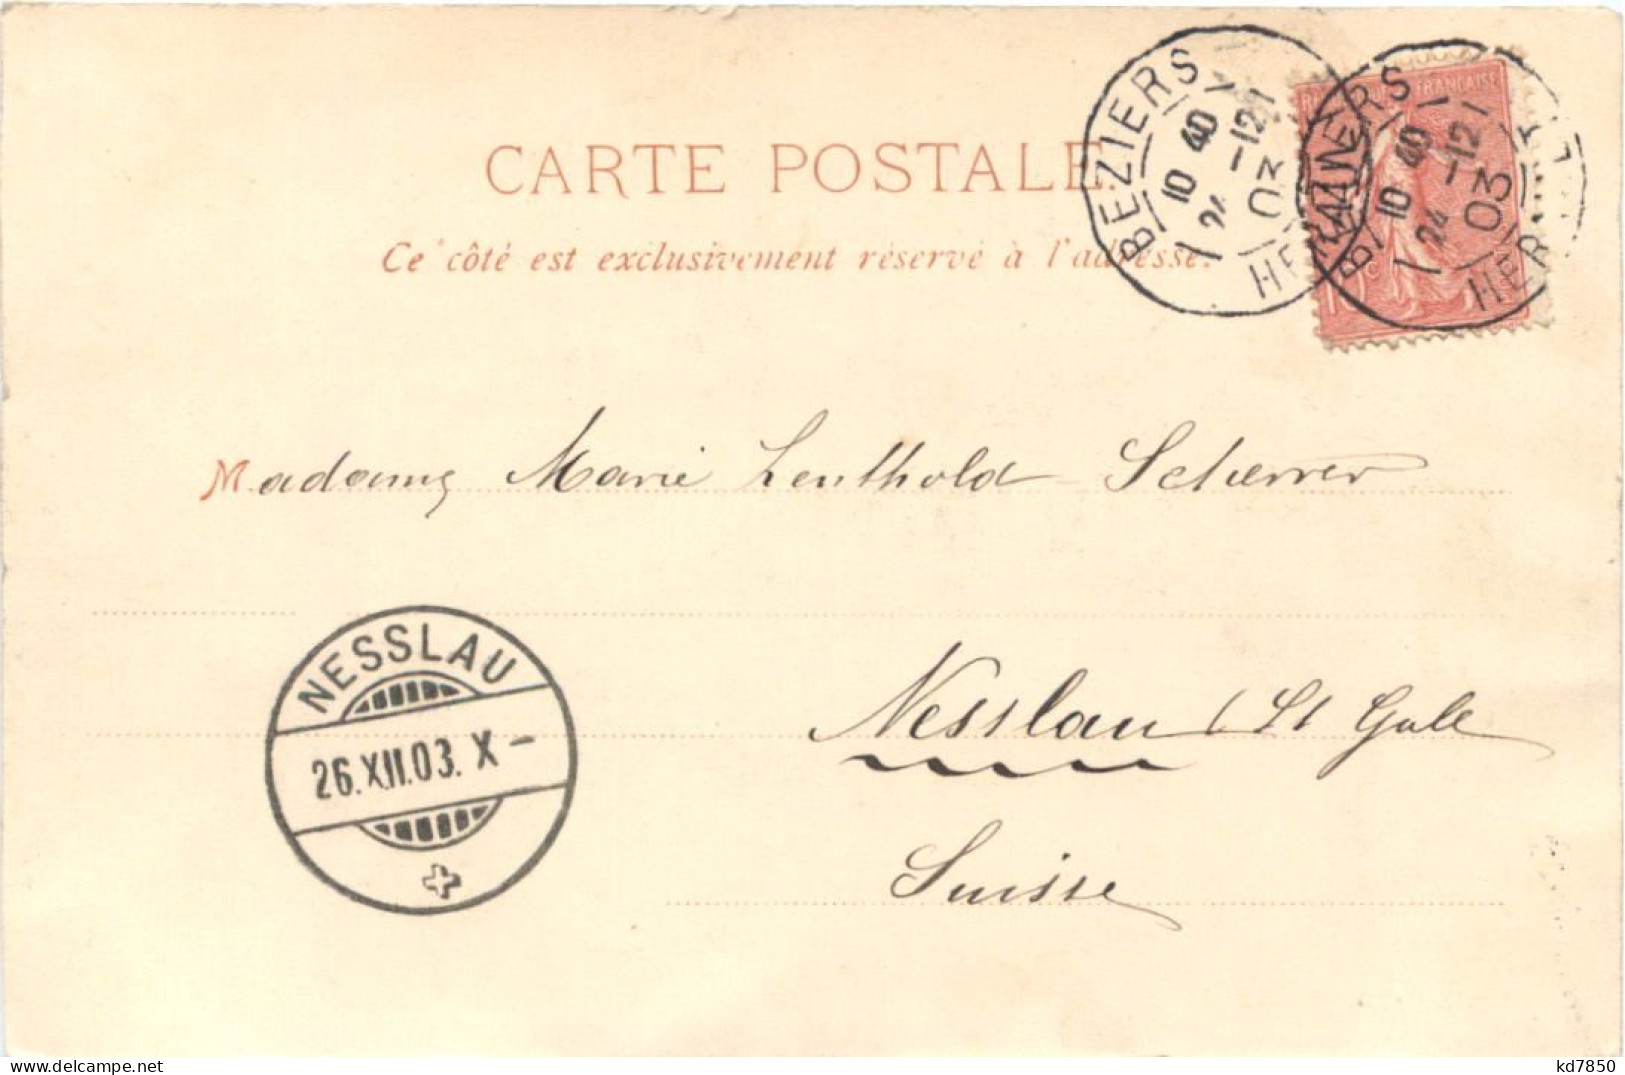 CARTE POSTALE
Ce côté est exclusivement réservé à l'adresse.
BEZIERS
10 40
24 -12
03
HERAULT
BEZIERS
10 40
24 -12
03
HERAULT
FRANÇAISE
10c
Madame Marie Leuthold-Scherrer
Nesslau (St Gale
Suisse
NESSLAU
26.XII.03. X-
kd7850